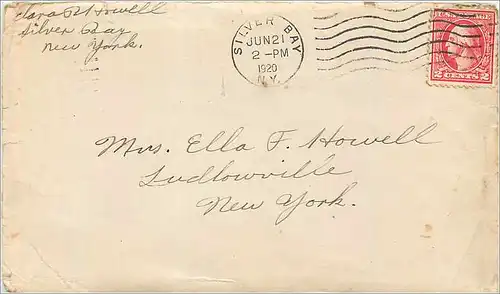 Howell
Silver Bay
New York.
SILVER BAY
JUN 21
2-PM
1920
N.Y.
2 CENTS 2
Mrs. Ella F. Howell
Ludlowville
New York.